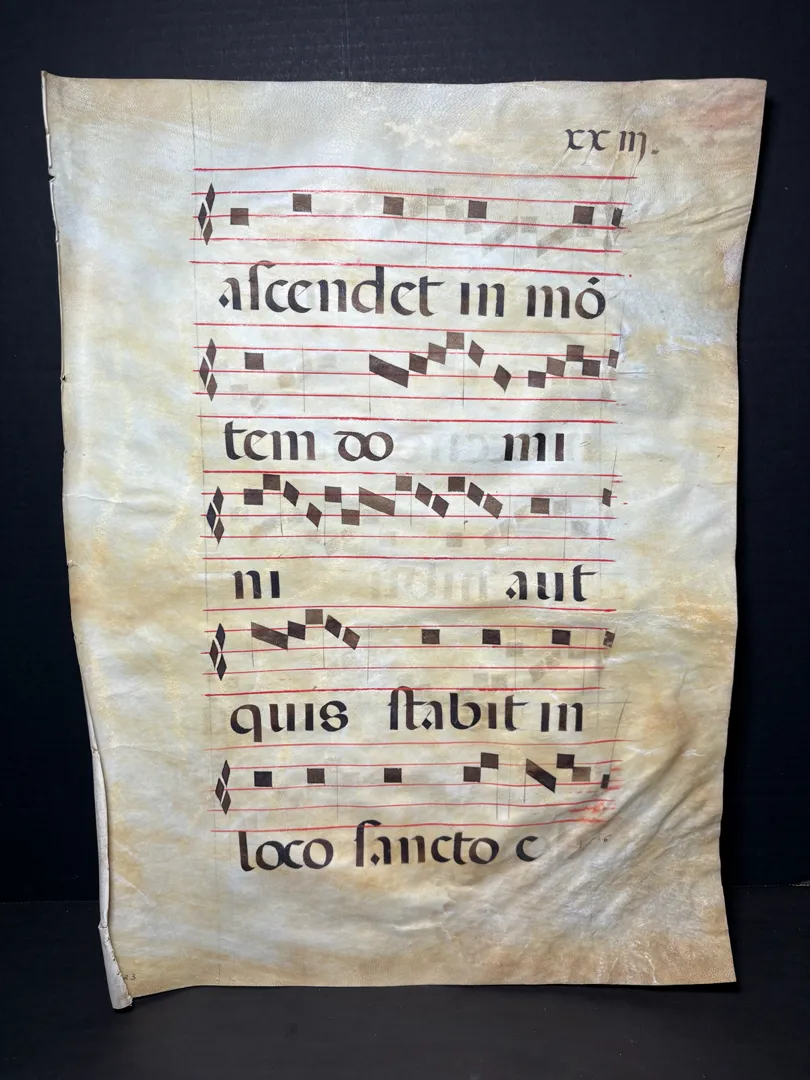 xxiij.
ascendet in mõ
tem do mi
ni aut
quis stabit in
loco sancto e
23